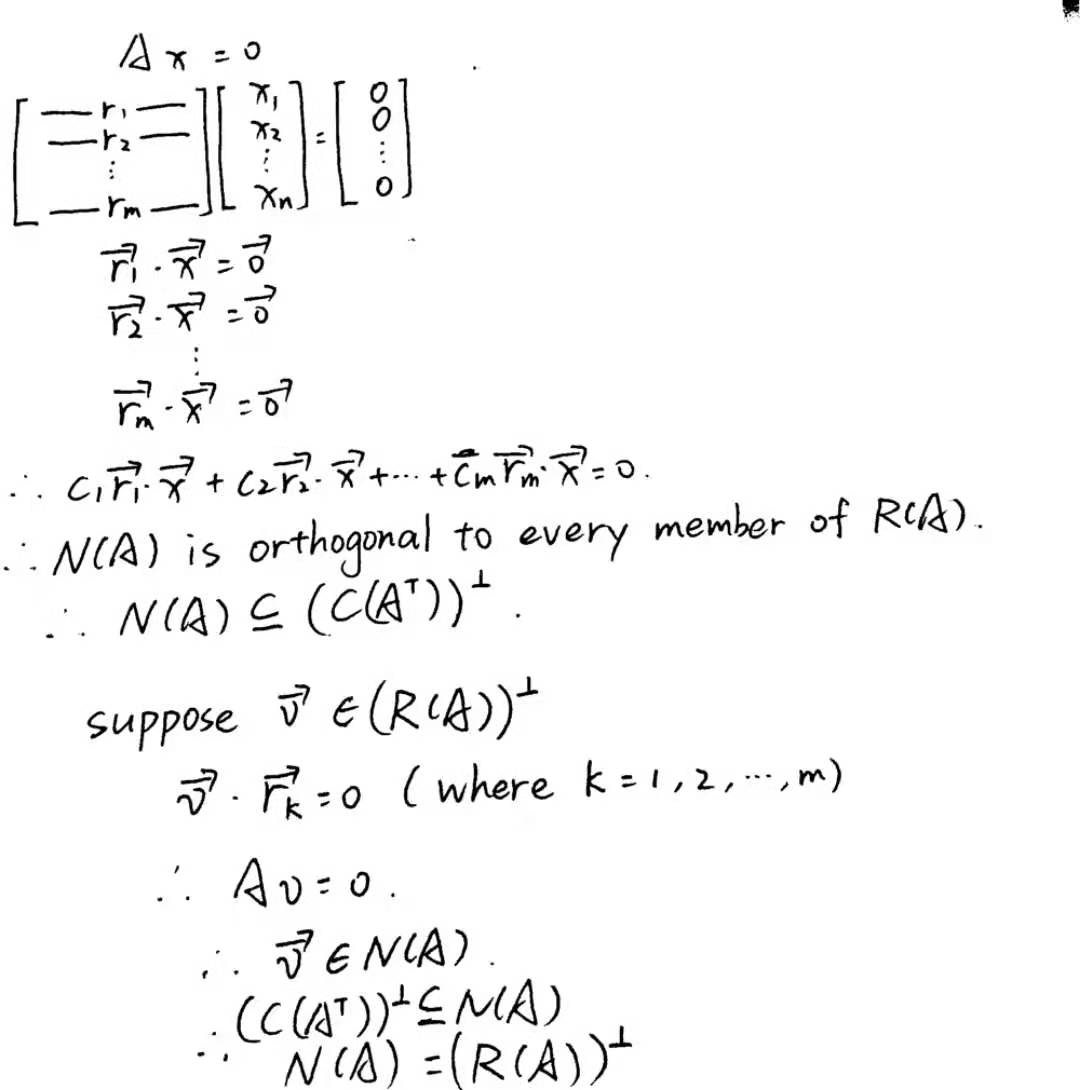 Ax = 0
[ — r₁ — ] [ x₁ ] = [ 0 ]
[ — r₂ — ] [ x₂ ] [ 0 ]
[ ⋮ ] [ ⋮ ] [ ⋮ ]
[ — rₘ — ] [ xₙ ] [ 0 ]
r⃗₁ · x⃗ = 0⃗
r⃗₂ · x⃗ = 0⃗
⋮
r⃗ₘ · x⃗ = 0⃗
∴ c₁r⃗₁·x⃗ + c₂r⃗₂·x⃗ + ⋯ + cₘr⃗ₘ·x⃗ = 0.
∴ N(A) is orthogonal to every member of R(A).
∴ N(A) ⊆ (C(Aᵀ))^⊥.
suppose v⃗ ∈ (R(A))^⊥
v⃗ · r⃗ₖ = 0 (where k = 1, 2, ⋯, m)
∴ Av = 0.
∴ v⃗ ∈ N(A).
∴ (C(Aᵀ))^⊥ ⊆ N(A)
∴ N(A) = (R(A))^⊥